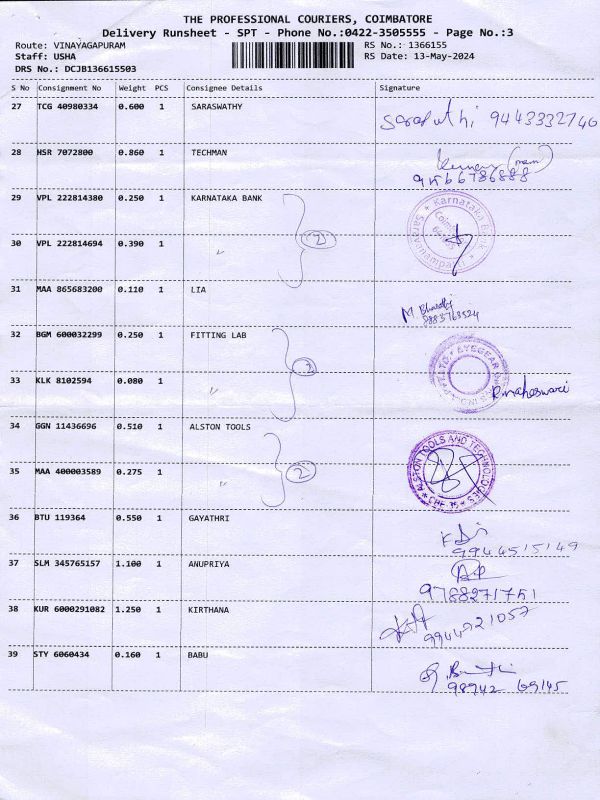 THE PROFESSIONAL COURIERS, COIMBATORE
Delivery Runsheet - SPT - Phone No.:0422-3505555 - Page No.:3
Route: VINAYAGAPURAM RS No.: 1366155
Staff: USHA RS Date: 13-May-2024
DRS No.: DCJB136615503
S No Consignment No Weight PCS Consignee Details Signature
27 TCG 40980334 0.600 1 SARASWATHY 9443332746
28 HSR 7072800 0.860 1 TECHMAN (mam)
9566786888
29 VPL 222814380 0.250 1 KARNATAKA BANK Karnataka Bank
30 VPL 222814694 0.390 1 " 2
31 MAA 865683200 0.110 1 LIA M. Bharathi
9883768524
32 BGM 600032299 0.250 1 FITTING LAB EYEGEAR
33 KLK 8102594 0.080 1 " 2 R.maheswari
34 GGN 11436696 0.510 1 ALSTON TOOLS ALSTON TOOLS AND TECHNOLOGIES
35 MAA 400003589 0.275 1 " 2 CBE-35
36 BTU 119364 0.550 1 GAYATHRI
9944515149
37 SLM 345765157 1.100 1 ANUPRIYA
9788271751
38 KUR 6000291082 1.250 1 KIRTHANA
9944921057
39 STY 6060434 0.160 1 BABU
98942 69145